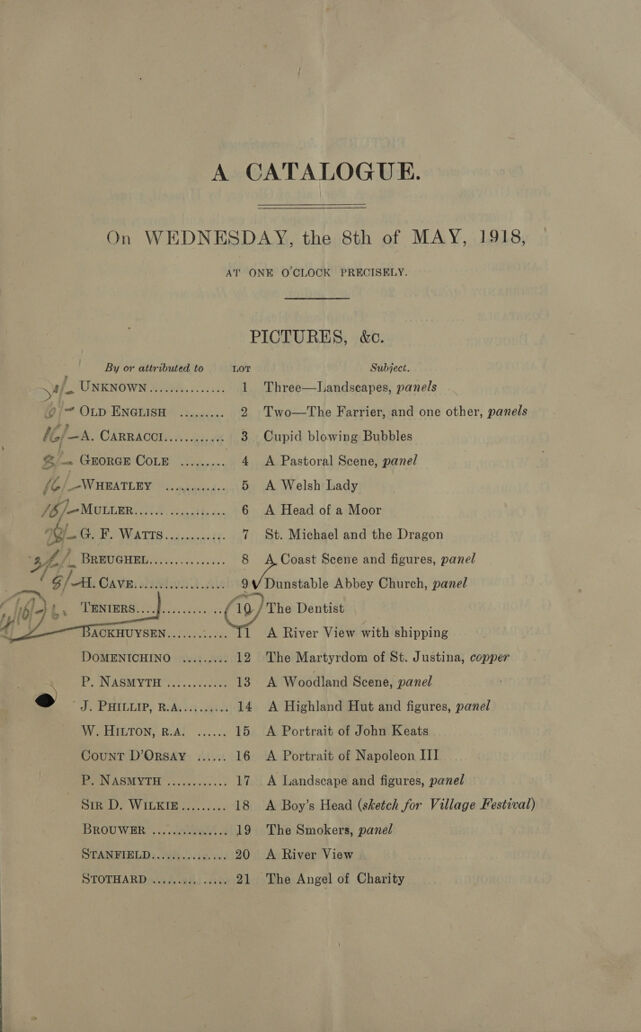 A CATALOGUE.
On WEDNESDAY, the 8th of MAY, 1918,
AT ONE O'CLOCK PRECISELY.
PICTURES, &c.
By or attributed to LOT Subject.
UNKNOWN............... 1 Three—Landscapes, panels
OLD ENGLISH ......... 2 Two—The Farrier, and one other, panels
A. CARRACCI............ 3 Cupid blowing Bubbles
GEORGE COLE ......... 4 A Pastoral Scene, panel
WHEATLEY ............ 5 A Welsh Lady
MULLER...... ............ 6 A Head of a Moor
G. F. WATTS............ 7 St. Michael and the Dragon
BREUGHEL............... 8 A Coast Scene and figures, panel
H. CAVE.................. 9 Dunstable Abbey Church, panel
TENIERS.... ......... .. 10 The Dentist
BACKHUYSEN............ 11 A River View with shipping
DOMENICHINO ......... 12 The Martyrdom of St. Justina, copper
P. NASMYTH ............ 13 A Woodland Scene, panel
J. PHILLIP, R.A.......... 14 A Highland Hut and figures, panel
W. HILTON, R.A. ...... 15 A Portrait of John Keats
COUNT D'ORSAY ...... 16 A Portrait of Napoleon III
P. NASMYTH ............ 17 A Landscape and figures, panel
SIR D. WILKIE......... 18 A Boy's Head (sketch for Village Festival)
BROUWER ............... 19 The Smokers, panel
STANFIELD............... 20 A River View
STOTHARD ......... ..... 21 The Angel of Charity